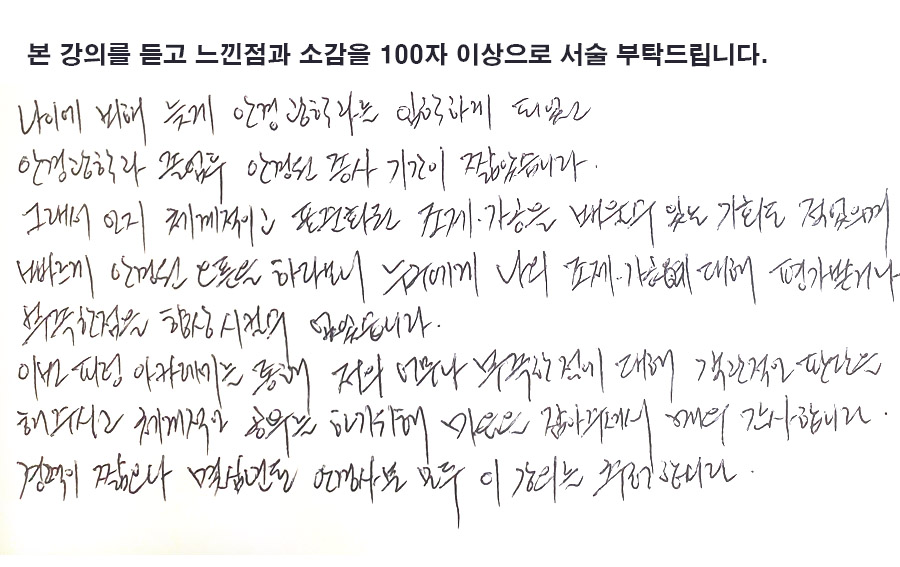 본 강의를 듣고 느낀점과 소감을 100자 이상으로 서술 부탁드립니다.
나이에 비해 늦게 안경광학과를 입학하게 되었고
안경광학과 졸업후 안경원 종사 기간이 짧았습니다.
그래서 인지 체계적이고 표준화된 조제·가공을 배울수 있는 기회도 적었으며
빠르게 안경원 오픈을 하다보니 누구에게 나의 조제·가공에 대해 평가받거나
부족한점을 향상시킬수 없었습니다.
이번 피팅 아카데미를 통해 저의 부족한 점에 대해 객관적인 판단을
해주시고 체계적인 공부를 하기위해 마음을 잡아주셔서 매우 감사합니다.
경력이 짧으나 안경사분 모두 이 강의를 추천합니다.